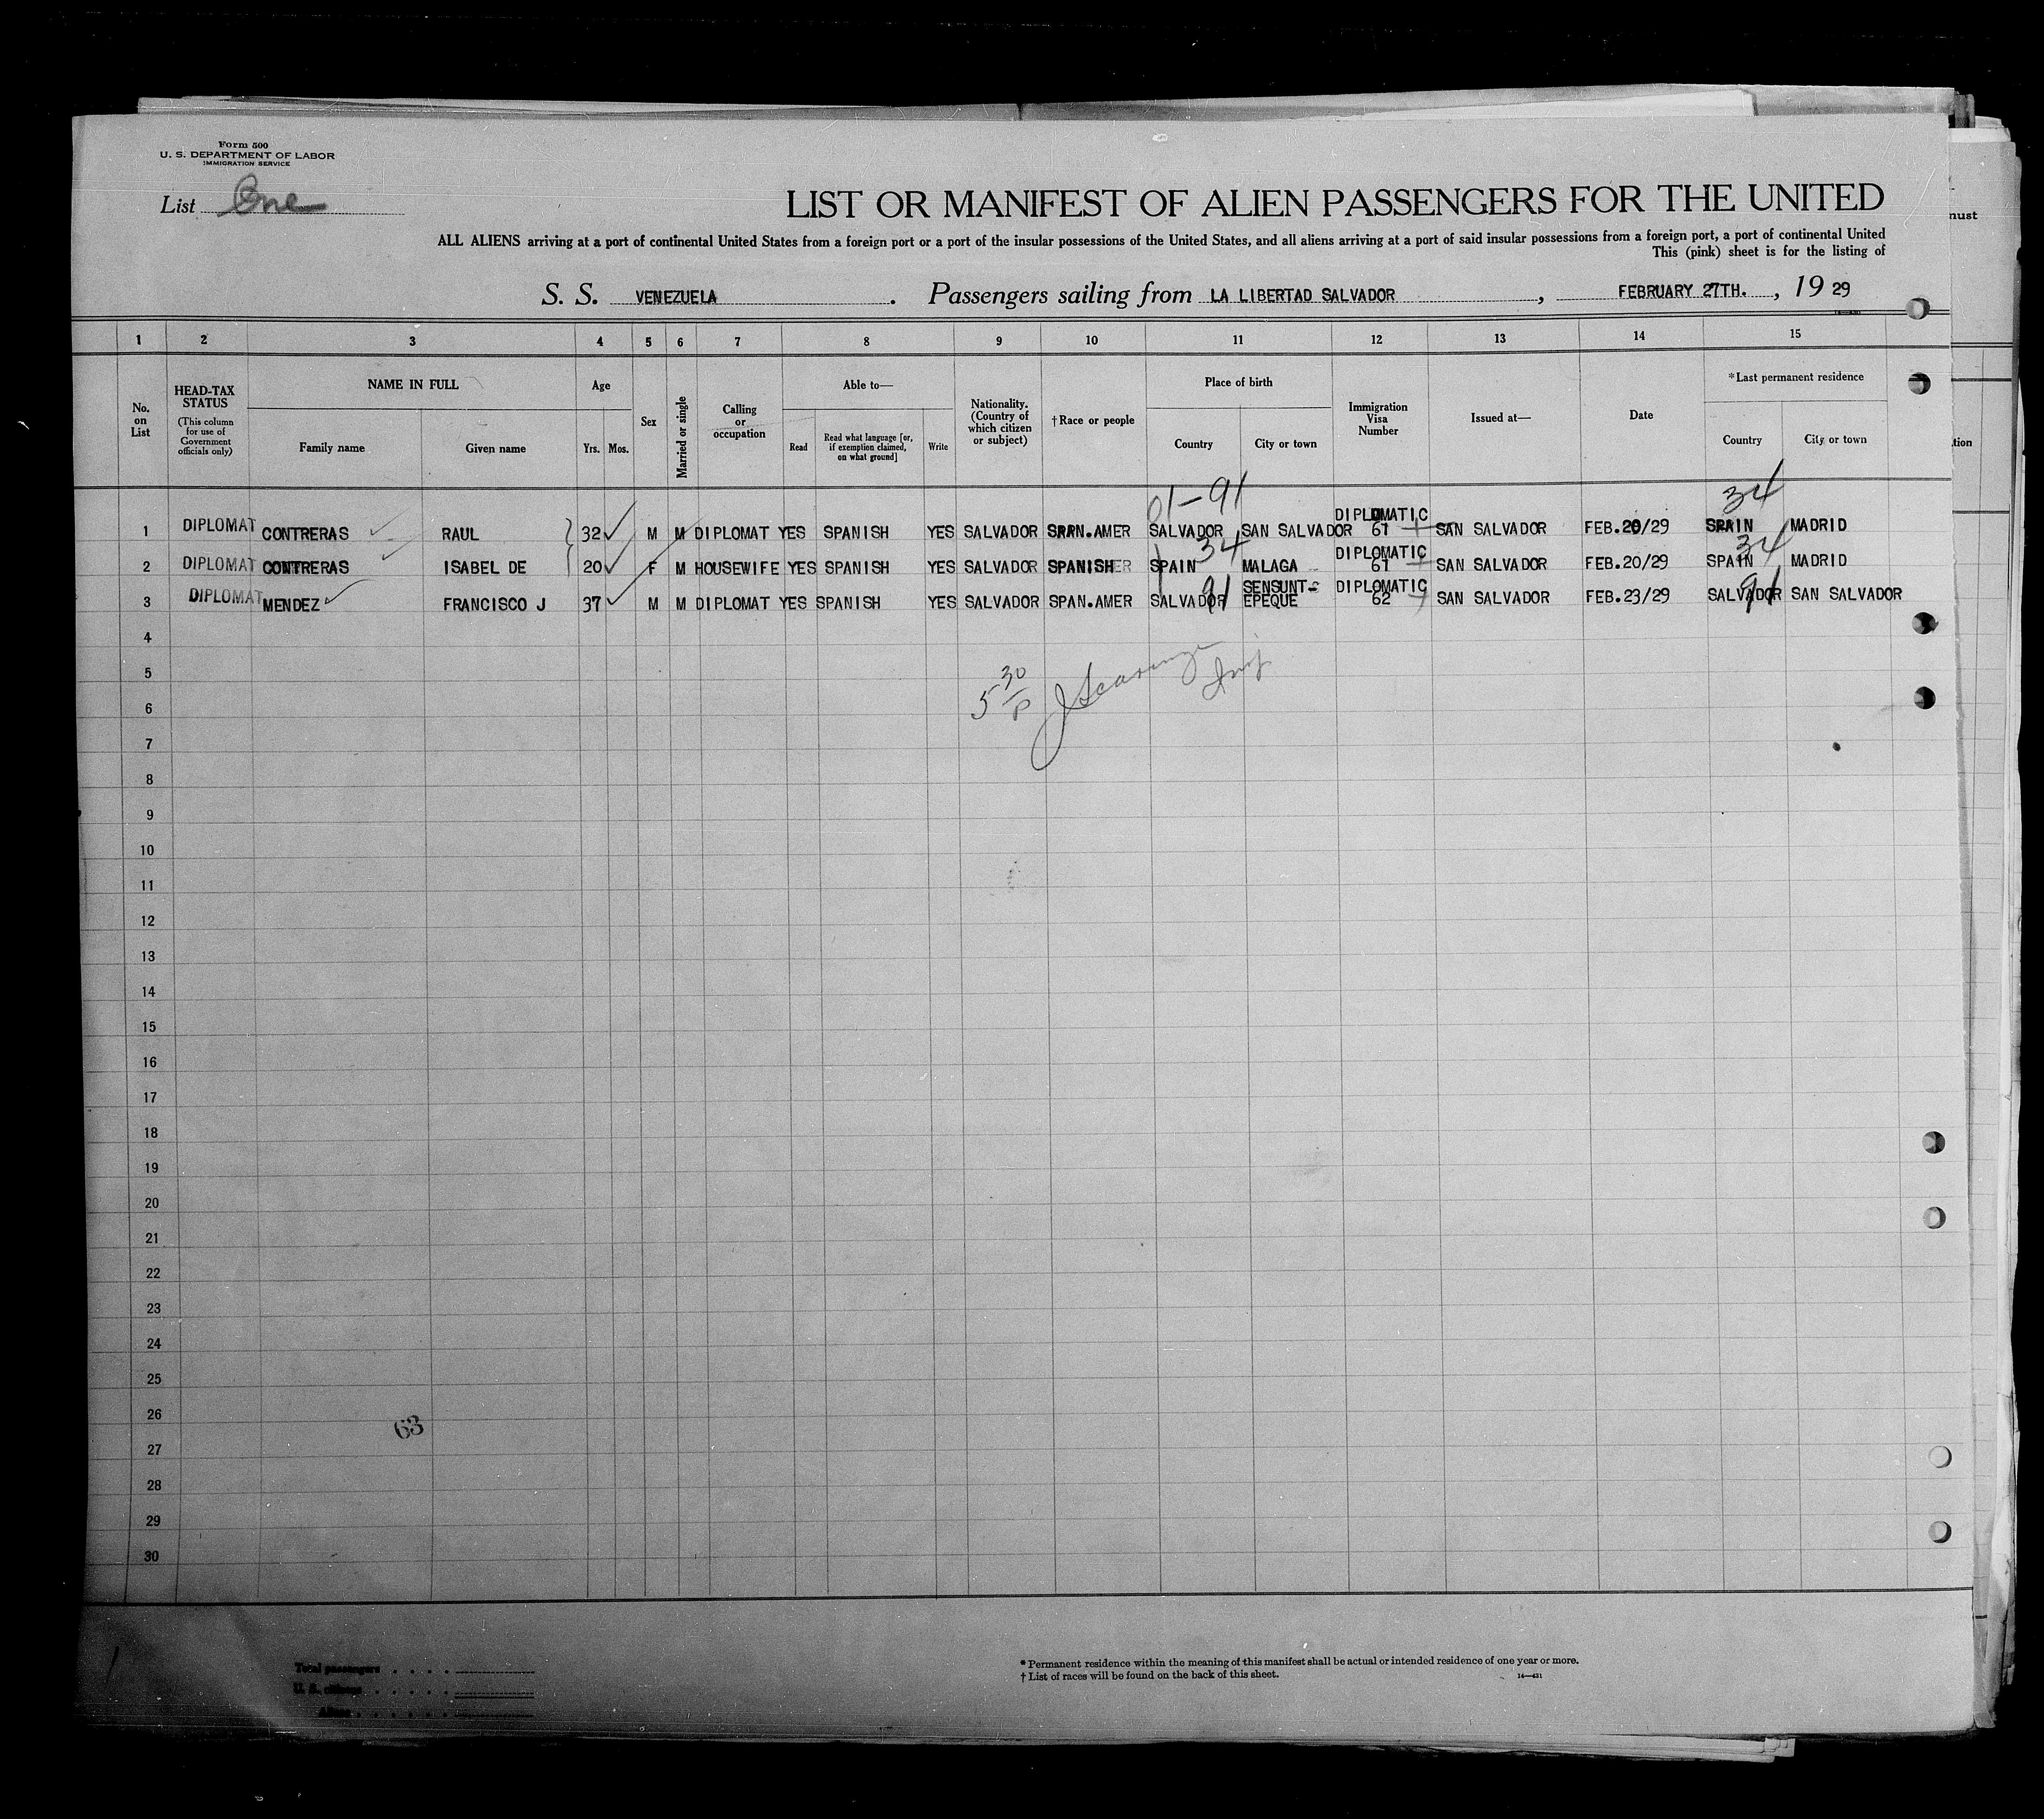 Form 500
U. S. DEPARTMENT OF LABOR
IMMIGRATION SERVICE
List One
LIST OR MANIFEST OF ALIEN PASSENGERS FOR THE UNITED
ALL ALIENS arriving at a port of continental United States from a foreign port or a port of the insular possessions of the United States, and all aliens arriving at a port of said insular possessions from a foreign port, a port of continental United
This (pink) sheet is for the listing of
S. S. VENEZUELA. Passengers sailing from LA LIBERTAD SALVADOR, FEBRUARY 27TH., 19 29
1 2 3 4 5 6 7 8 9 10 11 12 13 14 15
No. on List
HEAD-TAX STATUS
(This column for use of Government officials only)
NAME IN FULL
Family name
Given name
Age
Yrs. Mos.
Sex
Married or single
Calling or occupation
Able to—
Read
Read what language [or, if exemption claimed, on what ground]
Write
Nationality. (Country of which citizen or subject)
†Race or people
Place of birth
Country
City or town
Immigration Visa Number
Issued at—
Date
*Last permanent residence
Country
City or town
01-91 34
1 DIPLOMAT CONTRERAS RAUL 32 M M DIPLOMAT YES SPANISH YES SALVADOR SPAN.AMER SALVADOR SAN SALVADOR DIPLOMATIC 61 SAN SALVADOR FEB.20/29 SPAIN MADRID
34 34
2 DIPLOMAT CONTRERAS ISABEL DE 20 F M HOUSEWIFE YES SPANISH YES SALVADOR SPANISH SPAIN MALAGA DIPLOMATIC 61 SAN SALVADOR FEB.20/29 SPAIN MADRID
91 91
3 DIPLOMAT MENDEZ FRANCISCO J 37 M M DIPLOMAT YES SPANISH YES SALVADOR SPAN.AMER SALVADOR SENSUNT-EPEQUE DIPLOMATIC 62 SAN SALVADOR FEB.23/29 SALVADOR SAN SALVADOR
4
5
5 30/P
6
7
8
9
10
11
12
13
14
15
16
17
18
19
20
21
22
23
24
25
26
63
27
28
29
30
Total passengers
U. S. citizens
Aliens
*Permanent residence within the meaning of this manifest shall be actual or intended residence of one year or more.
†List of races will be found on the back of this sheet.
14—431